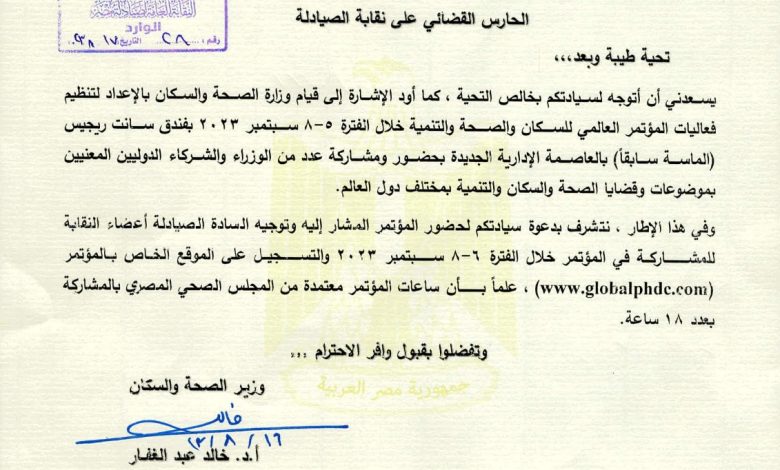 النقابة العامة
الوارد
رقم: ٢٨ التاريخ ١٧ / ٨
الحارس القضائي على نقابة الصيادلة
تحية طيبة وبعد،،،
يسعدني أن أتوجه لسيادتكم بخالص التحية ، كما أود الإشارة إلى قيام وزارة الصحة والسكان بالإعداد لتنظيم
فعاليات المؤتمر العالمي للسكان والصحة والتنمية خلال الفترة ٥-٨ سبتمبر ٢٠٢٣ بفندق سانت ريجيس
(الماسة سابقاً) بالعاصمة الإدارية الجديدة بحضور ومشاركة عدد من الوزراء والشركاء الدوليين المعنيين
بموضوعات وقضايا الصحة والسكان والتنمية بمختلف دول العالم.
وفي هذا الإطار ، نتشرف بدعوة سيادتكم لحضور المؤتمر المشار إليه وتوجيه السادة الصيادلة أعضاء النقابة
للمشاركة في المؤتمر خلال الفترة ٦-٨ سبتمبر ٢٠٢٣ والتسجيل على الموقع الخاص بالمؤتمر
(www.globalphdc.com) ، علماً بأن ساعات المؤتمر معتمدة من المجلس الصحي المصري بالمشاركة
بعدد ١٨ ساعة.
وتفضلوا بقبول وافر الاحترام ،،،
جمهورية مصر العربية
وزير الصحة والسكان
١٦ / ٨ /
أ.د. خالد عبد الغفار